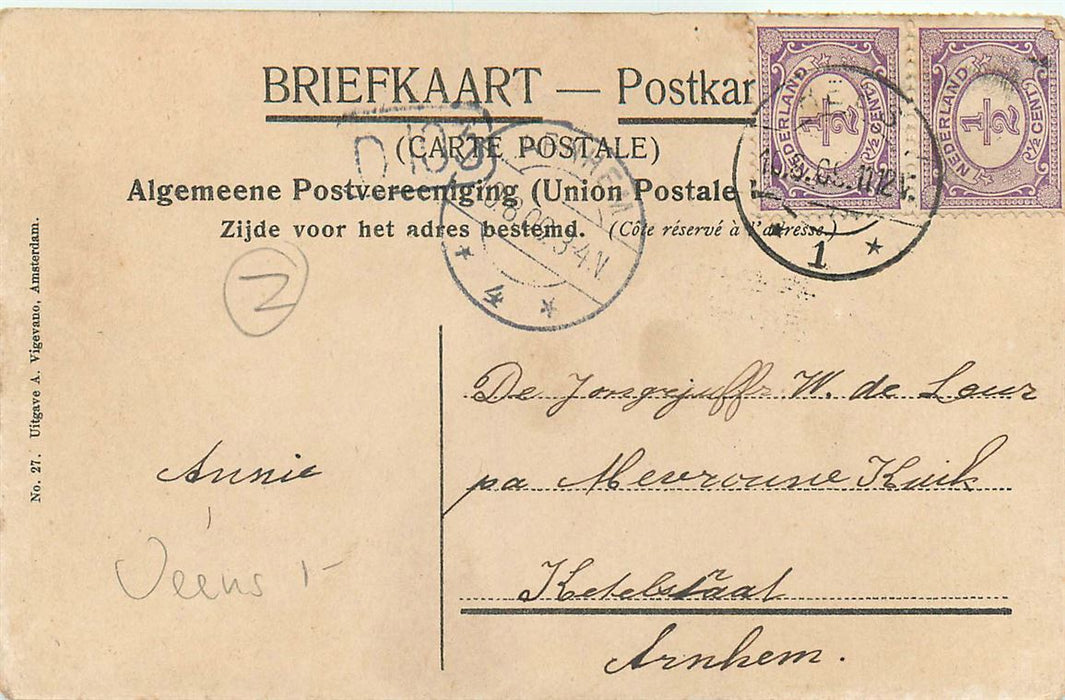 BRIEFKAART — Postkar
(CARTE POSTALE)
Algemeene Postvereeniging (Union Postale
Zijde voor het adres bestemd. (Côté réservé à l'adresse)
NEDERLAND ½ ½ CENT
NEDERLAND ½ ½ CENT
1
ARNHEM
4
N
No. 27. Uitgave A. Vigevano, Amsterdam.
De Jongejuffr W. de Leur
pa Mevrouwe Kuik
Annie
Ketelstraat
Arnhem.
Veens 1-